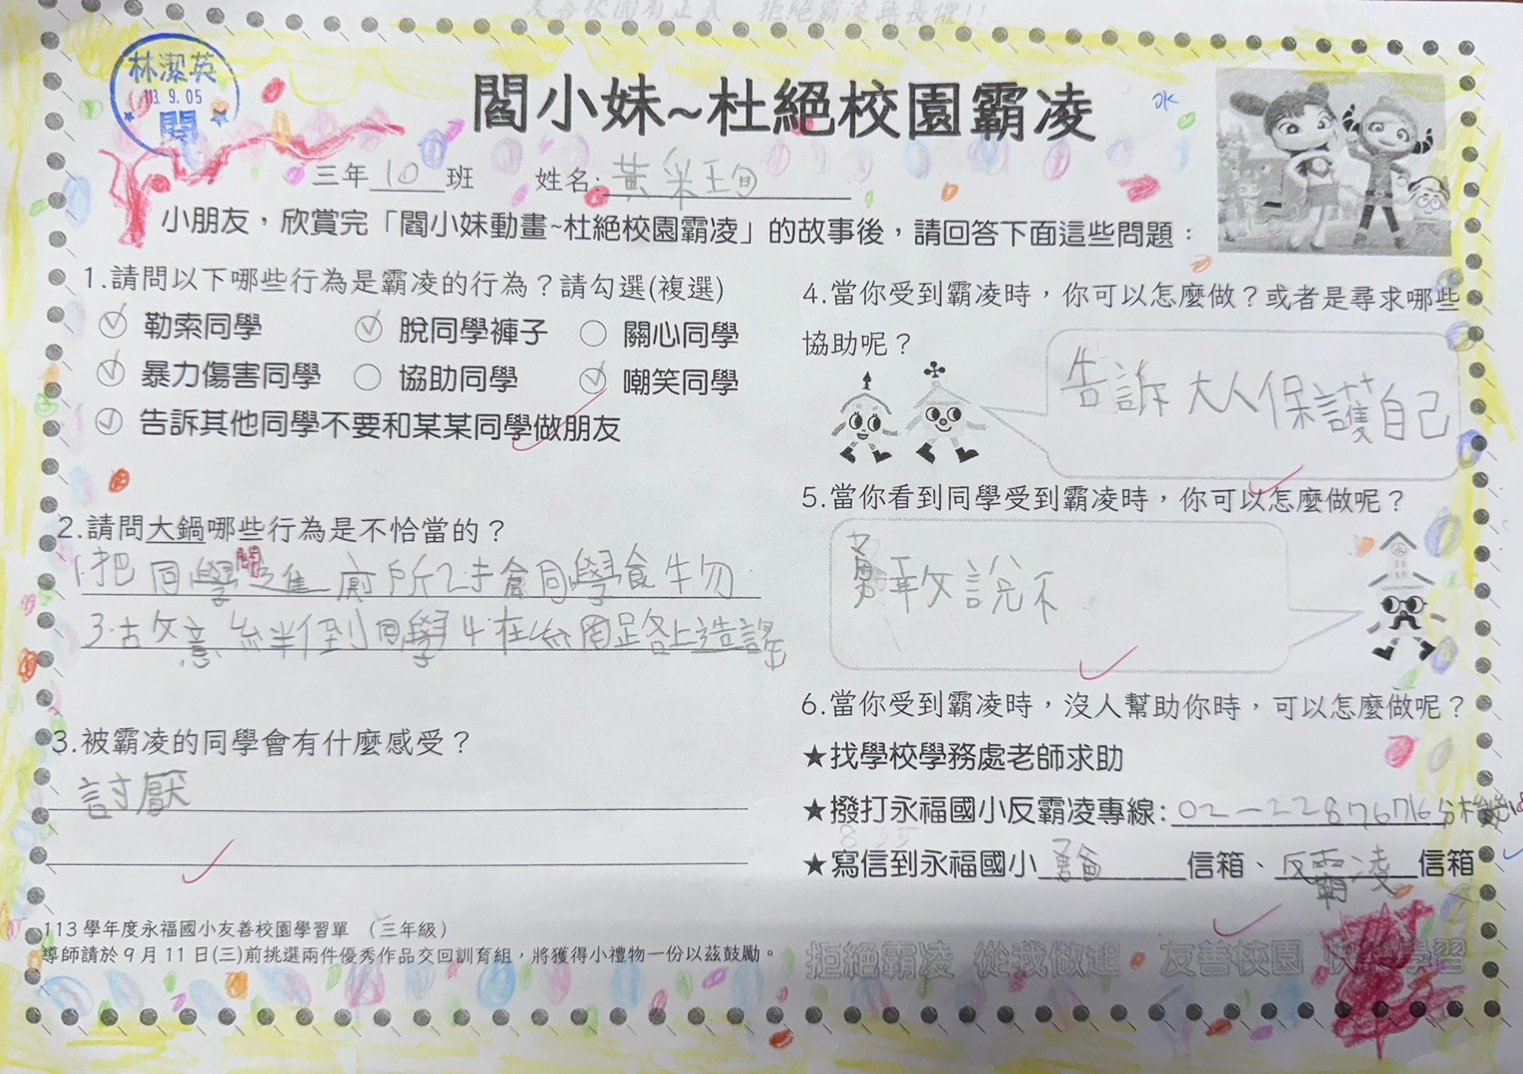 友善校園有正義 拒絕霸凌無畏懼!!
林潔英
113. 9. 05
閱
閻小妹~杜絕校園霸凌
水
三年 10 班 姓名: 黃采珣
小朋友，欣賞完「閻小妹動畫~杜絕校園霸凌」的故事後，請回答下面這些問題：
1.請問以下哪些行為是霸凌的行為？請勾選(複選)
勒索同學 脫同學褲子 關心同學
暴力傷害同學 協助同學 嘲笑同學
告訴其他同學不要和某某同學做朋友
2.請問大鍋哪些行為是不恰當的？
1.把同學關進廁所2.搶同學食物
3.故意絆倒同學4.在網路上造謠
3.被霸凌的同學會有什麼感受？
討厭
113 學年度永福國小友善校園學習單 （三年級）
導師請於 9 月 11 日(三)前挑選兩件優秀作品交回訓育組，將獲得小禮物一份以茲鼓勵。
4.當你受到霸凌時，你可以怎麼做？或者是尋求哪些
協助呢？
告訴大人保護自己
5.當你看到同學受到霸凌時，你可以怎麼做呢？
勇敢說不
6.當你受到霸凌時，沒人幫助你時，可以怎麼做呢？
★找學校學務處老師求助
★撥打永福國小反霸凌專線: 02-22876716分機
835
★寫信到永福國小 信箱、反霸凌信箱
拒絕霸凌 從我做起 友善校園 快樂學習